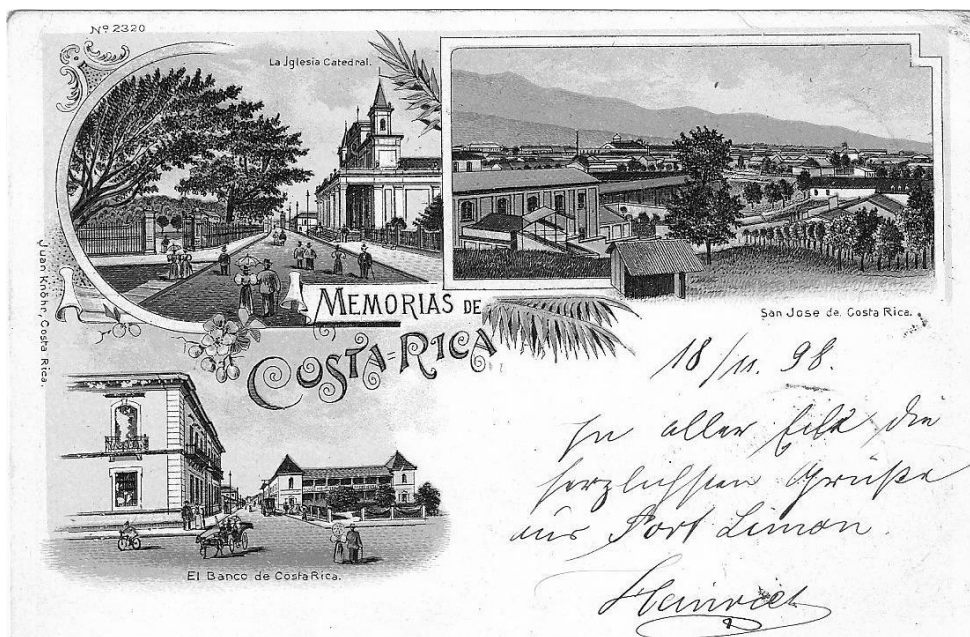 Nº 2320
La Jglesia Catedral.
Juan Knöhr, Costa Rica.
MEMORIAS DE
COSTA=RICA
San Jose de Costa Rica.
El Banco de Costa Rica.
18/11. 98.
In aller Eile die
herzlichsten Grüße
aus Port Limon.
Heinrich